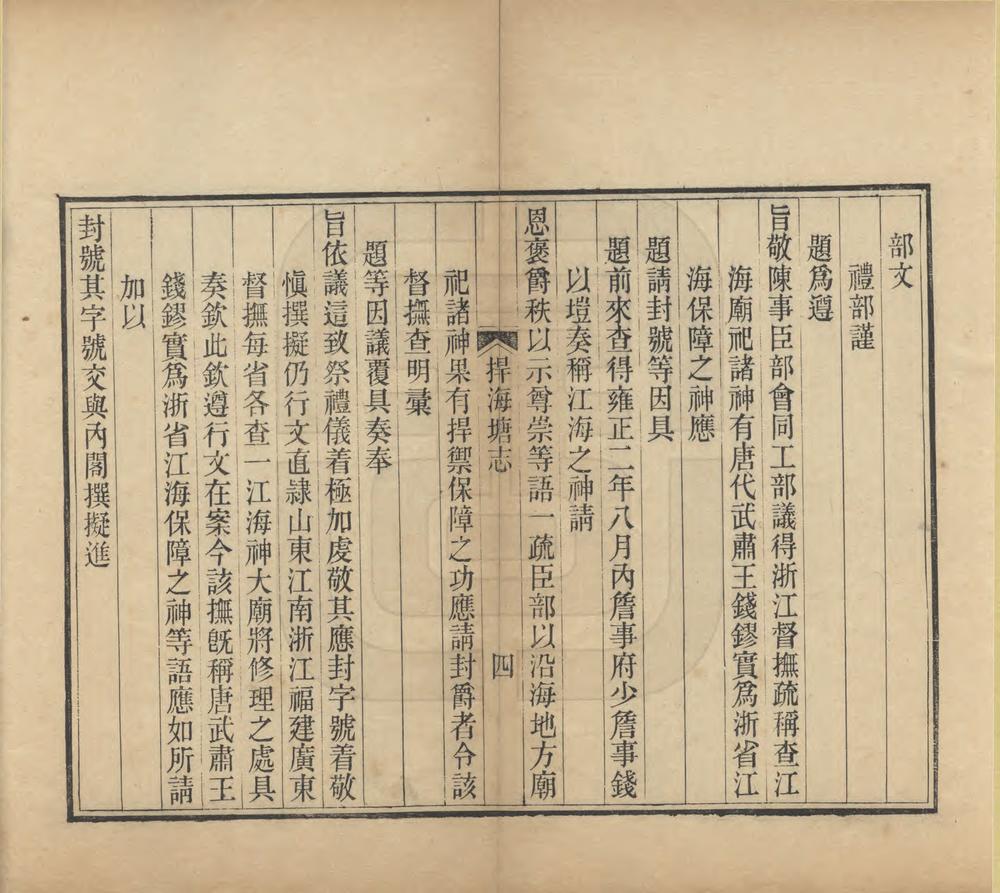 部文
禮部謹
題爲遵
旨敬陳事臣部會同工部議得浙江督撫疏稱查江
海廟祀諸神有唐代武肅王錢鏐實爲浙省江
海保障之神應
題請封號等因具
題前來查得雍正二年八月內詹事府少詹事錢
以塏奏稱江海之神請
恩褒爵秩以示尊崇等語一疏臣部以沿海地方廟
捍海塘志
四
祀諸神果有捍禦保障之功應請封爵者令該
督撫查明彙
題等因議覆具奏奉
旨依議這致祭禮儀着極加虔敬其應封字號着敬
愼撰擬仍行文直隸山東江南浙江福建廣東
督撫每省各查一江海神大廟將修理之處具
奏欽此欽遵行文在案今該撫旣稱唐武肅王
錢鏐實爲浙省江海保障之神等語應如所請
加以
封號其字號交與內閣撰擬進